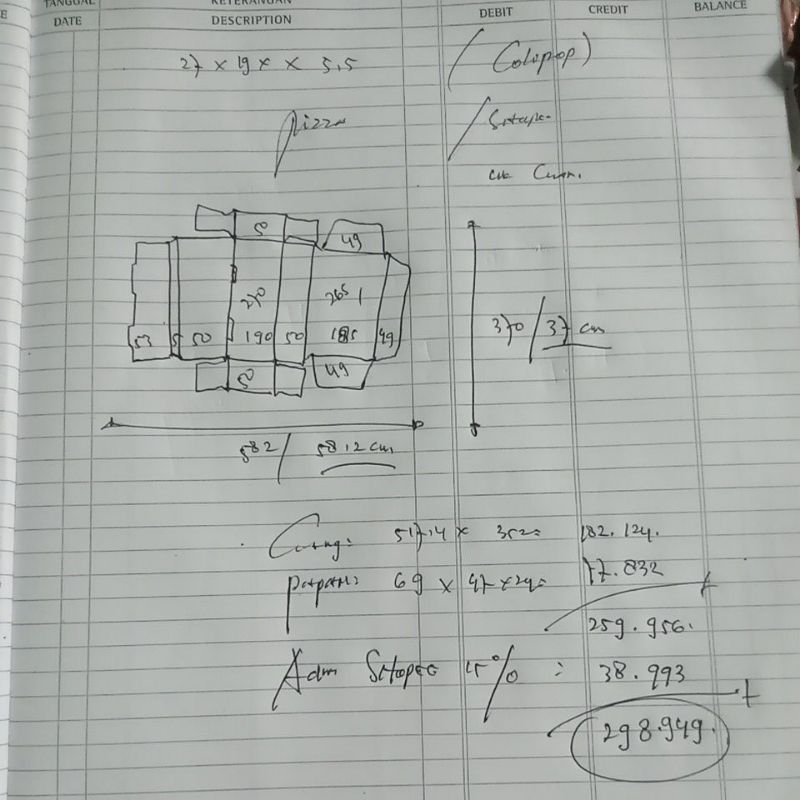 TANGGAL KETERANGAN
DATE DESCRIPTION DEBIT CREDIT BALANCE
27 x 19 x x 5,5 (Colopop)
pizza
53 5 50 190 50 185 49
50
270 265
49
50
49
370 / 37 cm
582 / 58,2 cm
517,14 x 352= 182.124.
69 x 47 x 24= 77.832
259.956.
Adm 15% : 38.993
298.949.